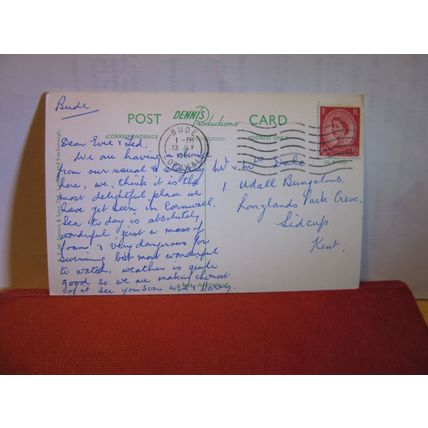 Bude
POST DENNIS Productions CARD
CORRESPONDENCE ADDRESS ONLY
BUDE
1 - PM
13 JLY
CORNWALL
Dear Evie & Ted.
We are having a change
from our usual &
here, we think it is the
most delightful place we
have yet seen in Cornwall.
Sea to day is absolutely
wonderful just a mass of
foam & very dangerous for
swimming but most wonderful
to watch, weather is quite
good so we are making the most
of it see you soon
Mr & Mrs
1 Udall Bungalows
Longlands Park Cresc.
Sidcup.
Kent.